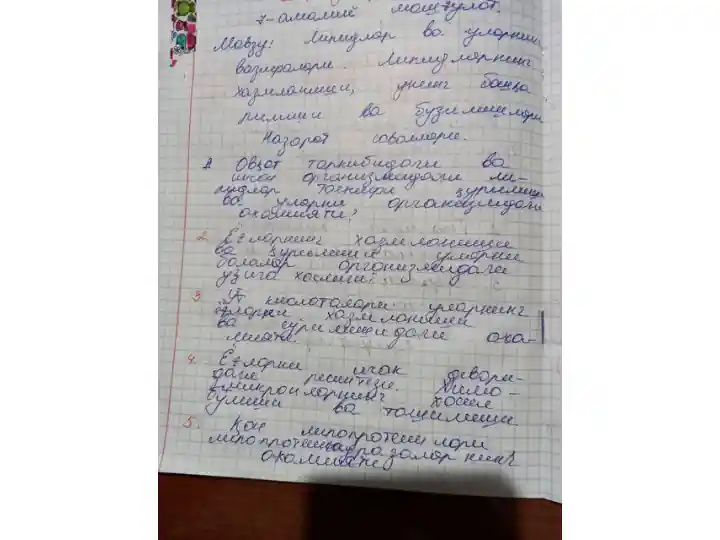 7-амалий машғулот.
Мавзу: Липидлар ва уларнинг
вазифалари. Липидларнинг
хазмланиши, унинг башқа
рилиши ва бузилишлари
Назорат саволлари.
1 Овқат таркибидаги ва
инсон организмидаги ли-
пидлар таснифи тузилиши
ва уларни организмдаги
ахамияти?
2. Ёғларнинг хазмланиши
ва сурилиши уларни
болалар организмидаги
узига хослиги.
3. Ўт кислоталари уларнинг
ёғларни хазмланиши
ва сурилишидаги аха-
мияти.
4. Ёғларни ичак девори-
даги ресинтези. Хило-
микронларнинг хосил
булиши ва ташилиши
5. Қон липопротеинлари
липопротеинлипазаларнинг
ахамияти